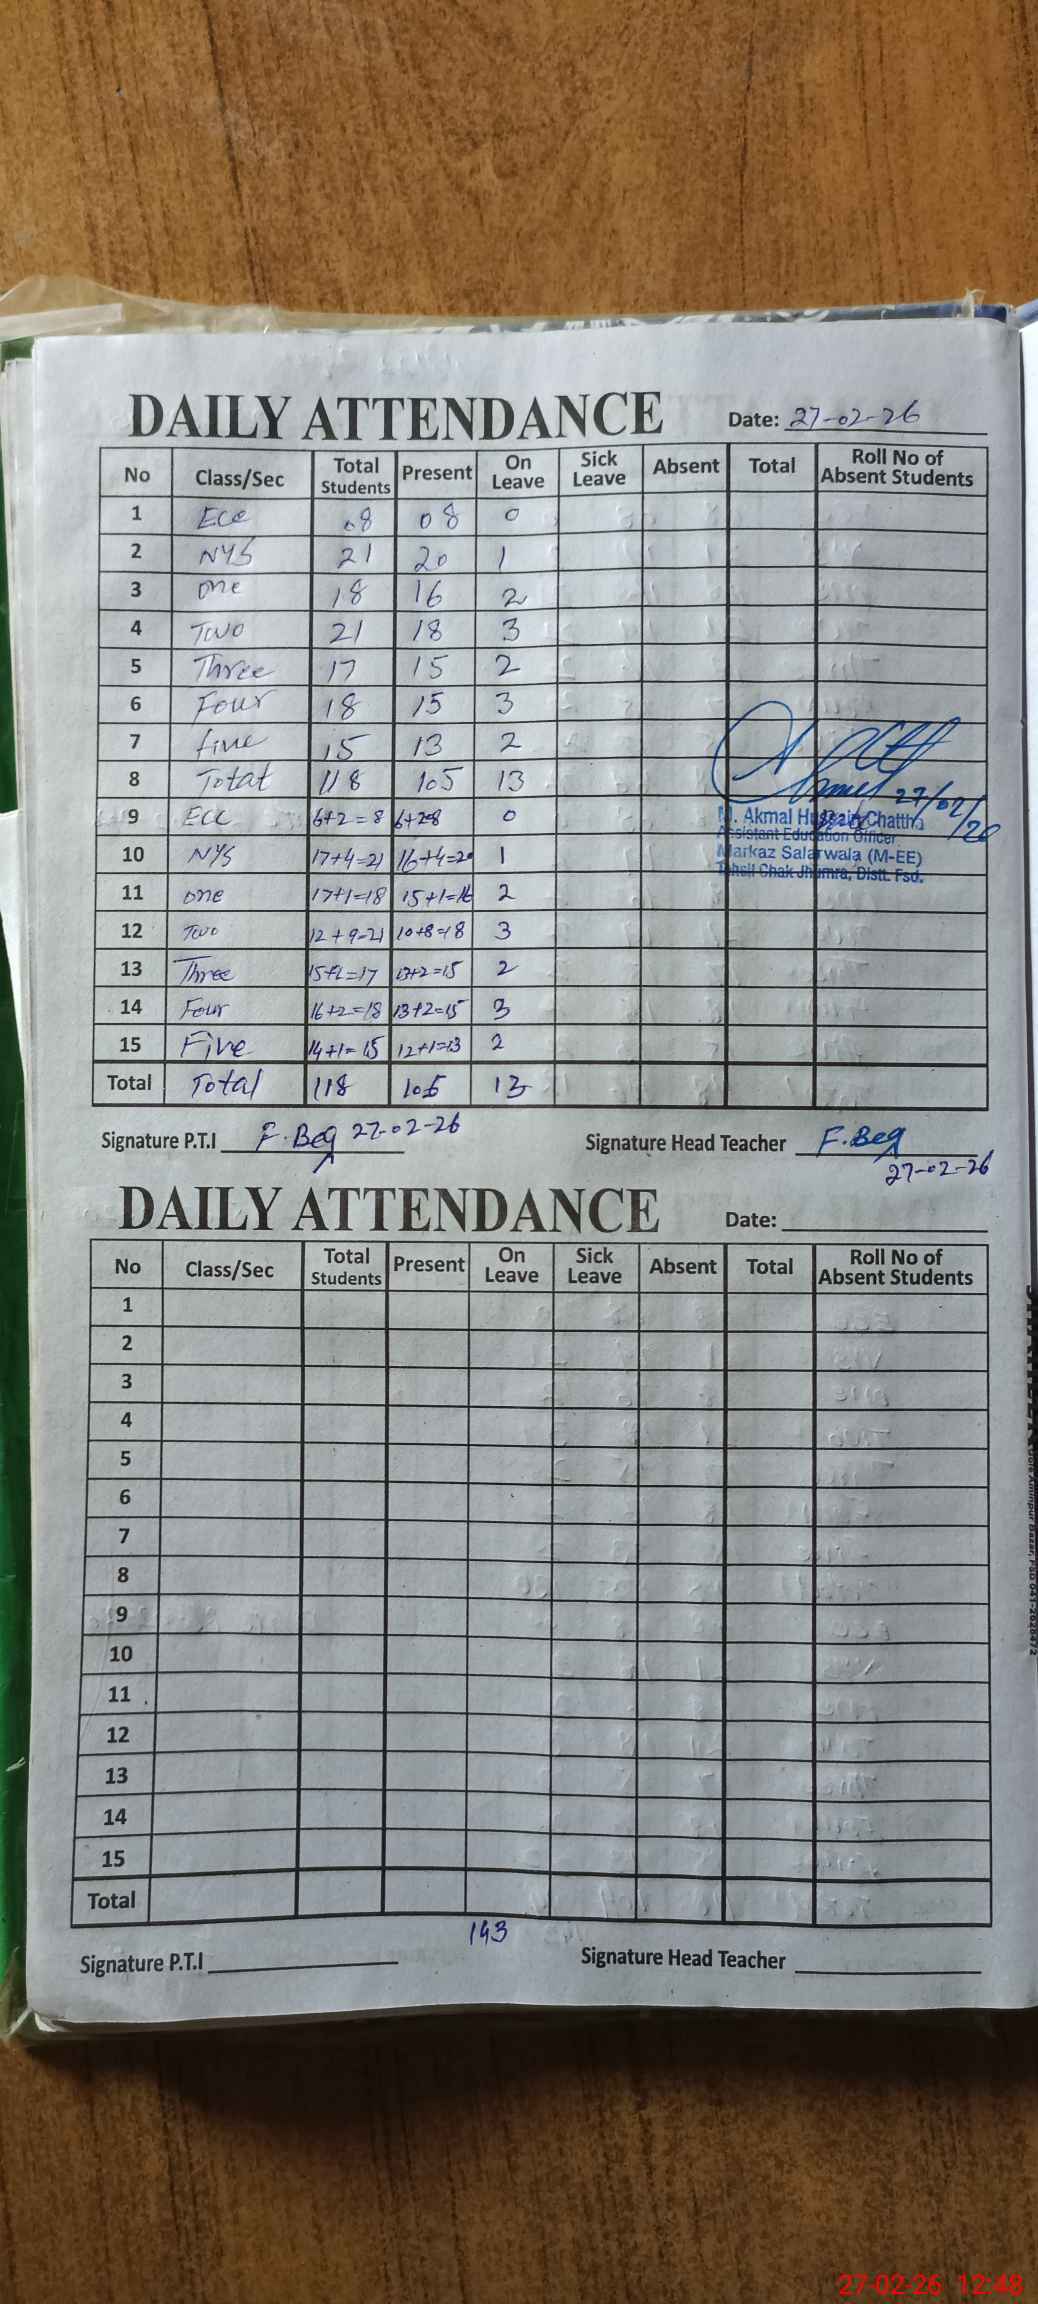 DAILY ATTENDANCE Date: 27-02-26
No Class/Sec Total Students Present On Leave Sick Leave Absent Total Roll No of Absent Students
1 ECE 08 08 0
2 NYS 21 20 1
3 one 18 16 2
4 Two 21 18 3
5 Three 17 15 2
6 Four 18 15 3
7 five 15 13 2
8 Total 118 105 13
27/02/26
9 ECE 6+2=8 6+2=8 0
M. Akmal Hussain Chattha
Assistant Education Officer
10 NYS 17+4=21 16+4=20 1
Markaz Salarwala (M-EE)
Tehsil Chak Jhumra, Distt. Fsd.
11 one 17+1=18 15+1=16 2
12 Two 12+9=21 10+8=18 3
13 Three 15+2=17 13+2=15 2
14 Four 16+2=18 13+2=15 3
15 Five 14+1=15 12+1=13 2
Total Total 118 105 13
Signature P.T.I F. Beg 27-02-26 Signature Head Teacher F. Beg
27-02-26
DAILY ATTENDANCE Date:
No Class/Sec Total Students Present On Leave Sick Leave Absent Total Roll No of Absent Students
1
2
3
4
5
6
7
8
9
10
11
12
13
14
15
Total
143
Signature P.T.I Signature Head Teacher
27-02-26 12:48